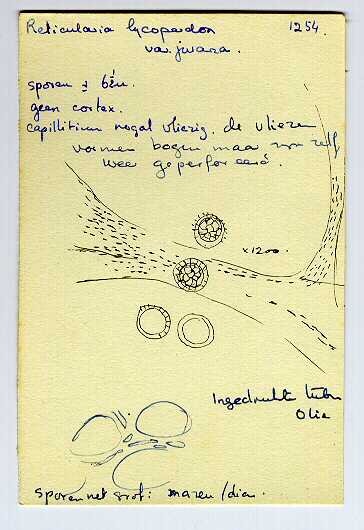 Reticularia lycoperdon 1254.
var. juvana.
sporen ± 6½ µ.
geen cortex.
capillitium nogal vliezig. de vliezen
vormen bogen maar zijn zelf
weer geperforeerd.
x1200.
Ingedrukte
Olie
sporen net grof: mazen/diam.